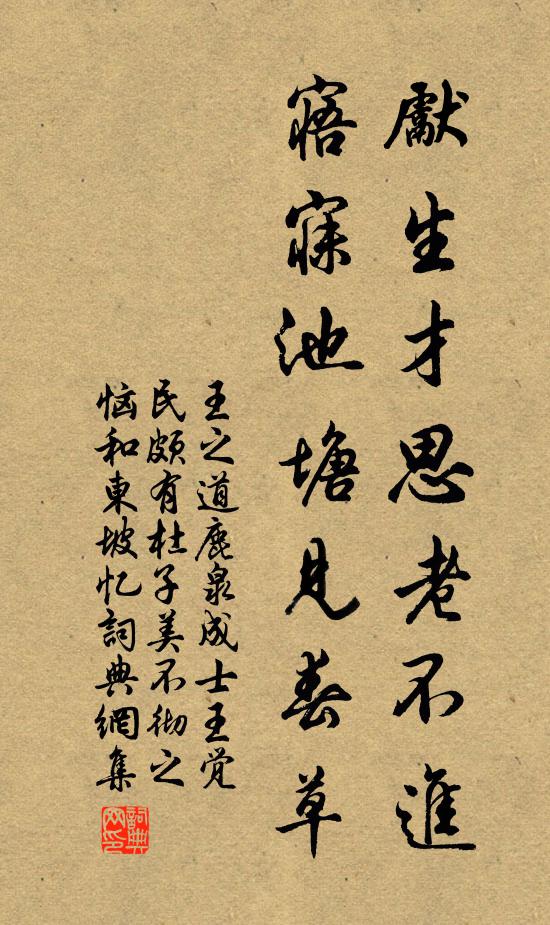 獻生才思老不進
寤寐池塘見春草
王之道鹿泉成士王觉
民颇有杜子美不彻之
恼和東坡忆詞典網集
詞典网印